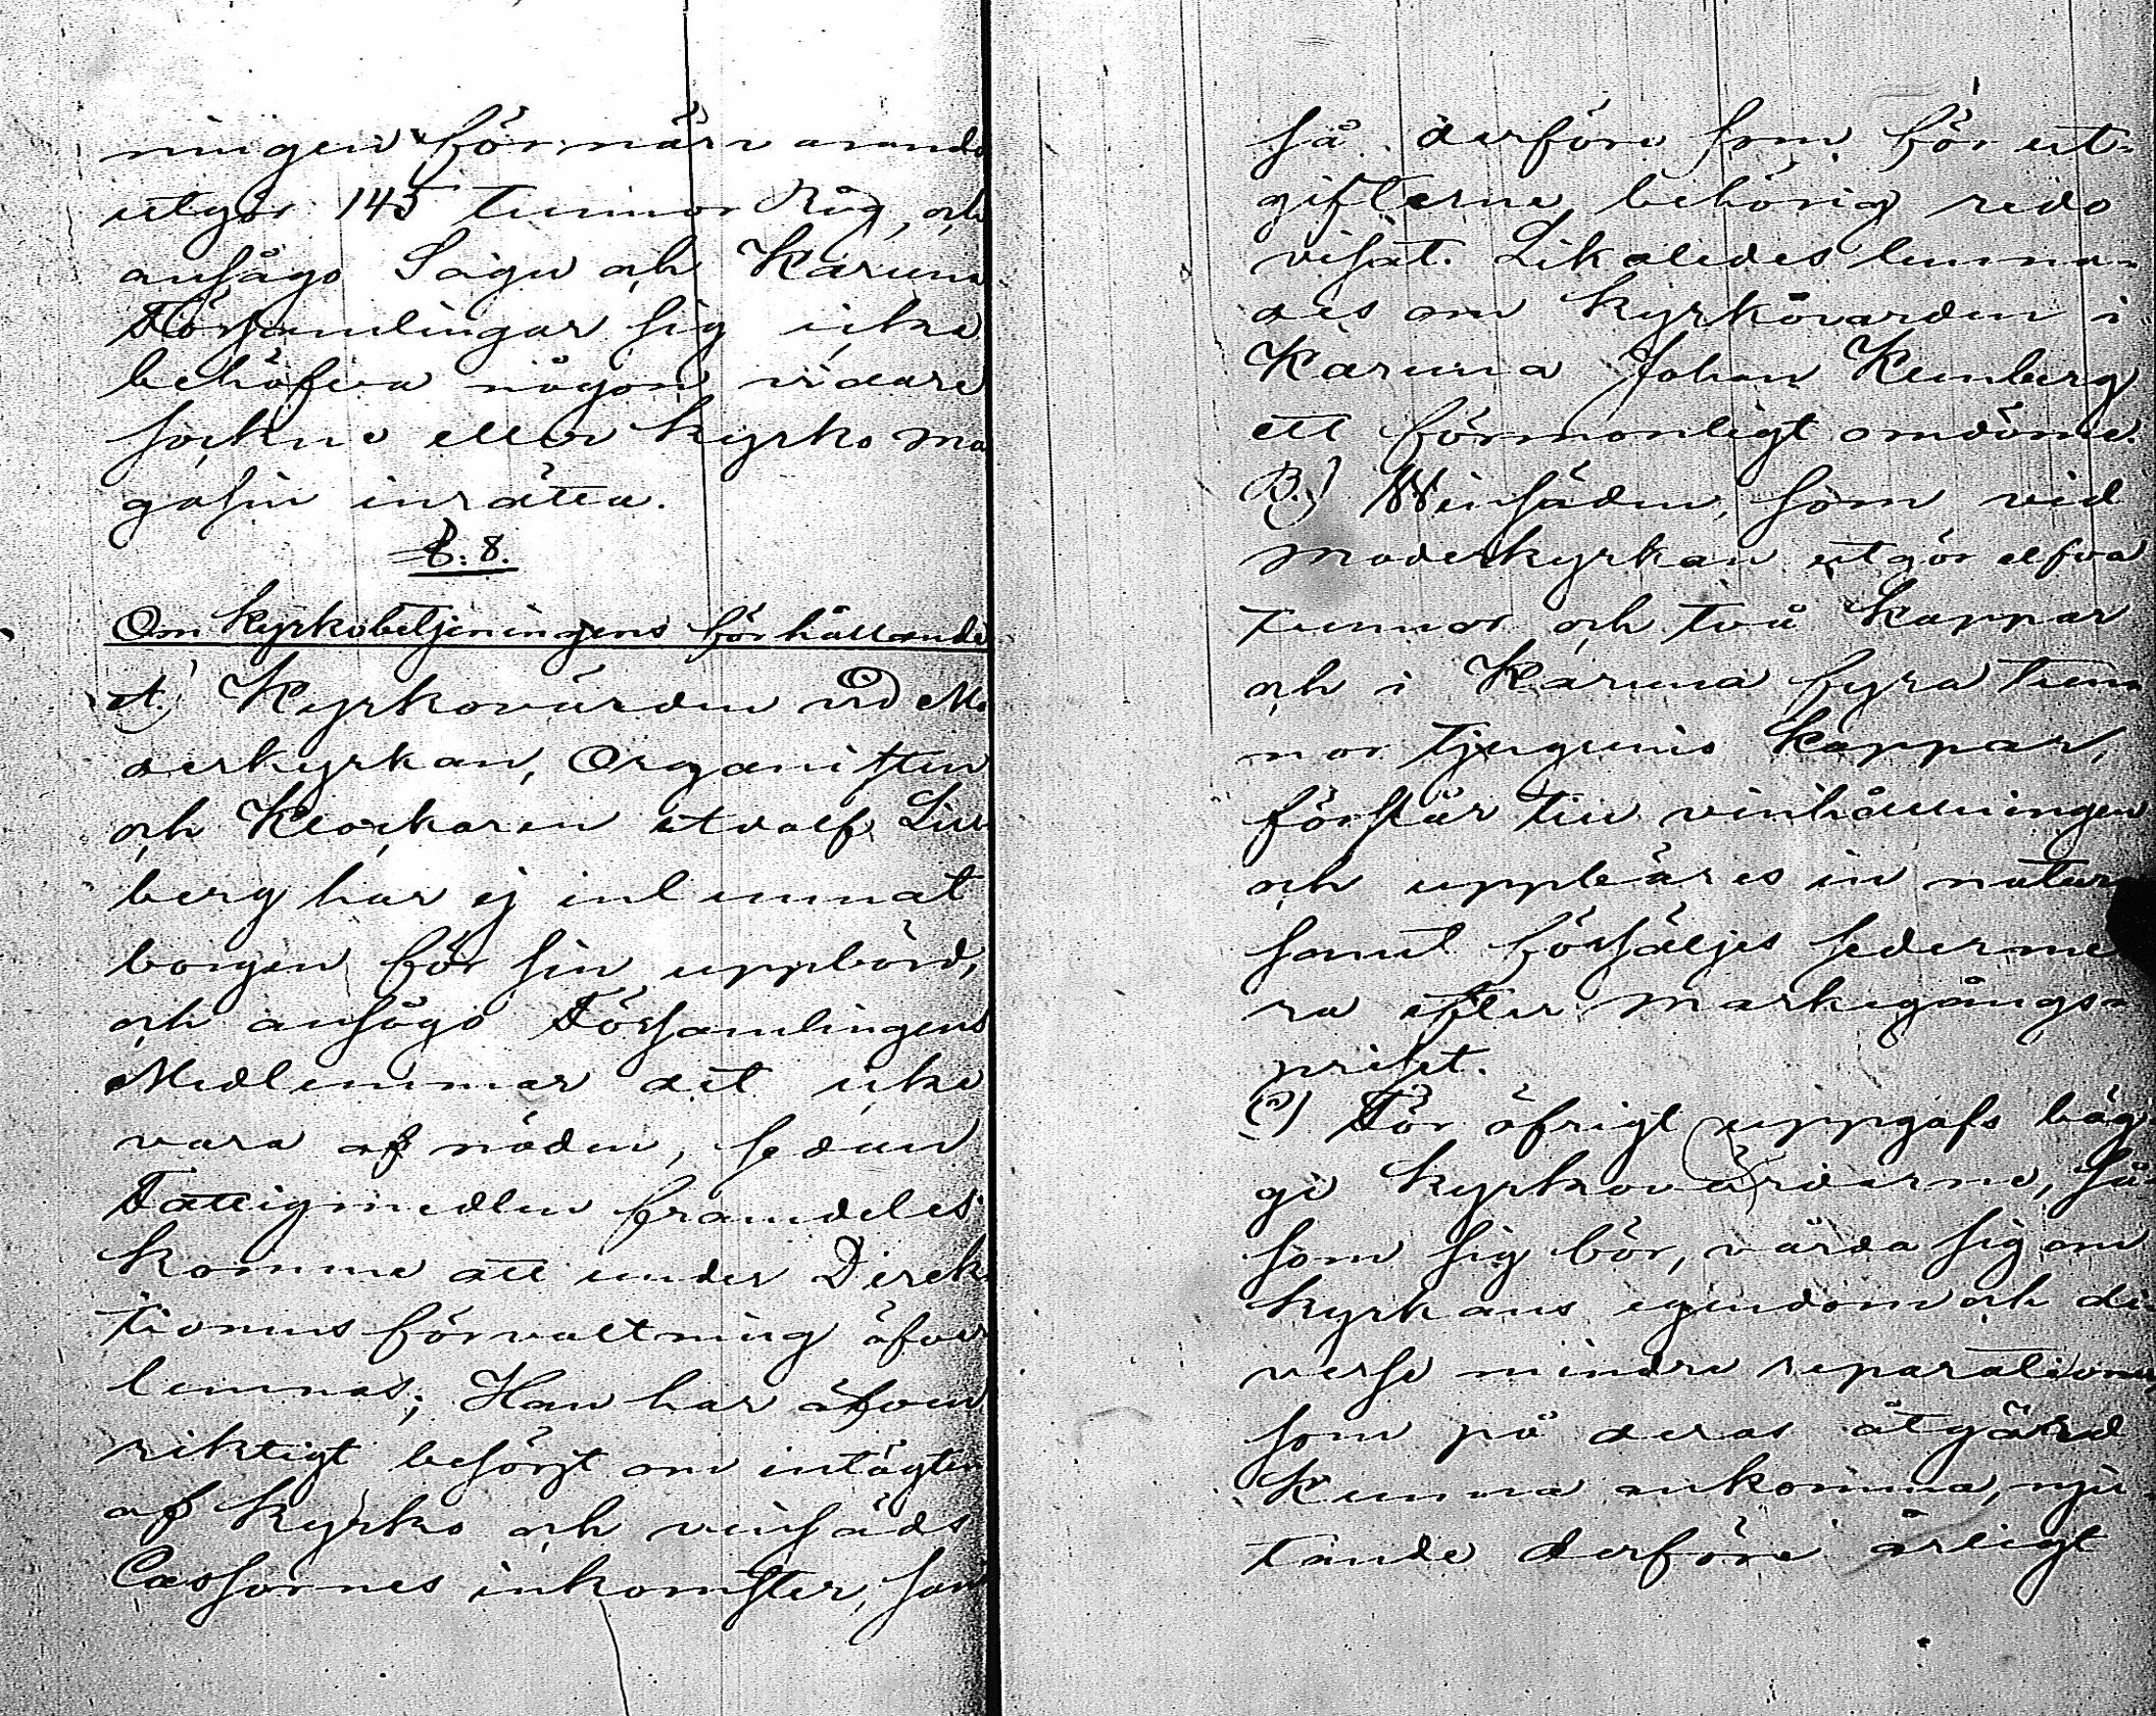 ningen för närvarande
utgör 145 tunnor Råg, och
ansågo Sagu och Karuna
Församlingar sig icke
behöfva någon vidare
sockne eller kyrko ma
gasin inrätta.
§: 8.
Om kyrkobetjeningens förhållande
A.) Kyrkovärden vid Mo
derkyrkan, Organisten
och Klockaren Adolf Lind
berg har ej inlemnat
borgen för sin uppbörd,
och ansågo Församlingens
Medlemmar det icke
vara af nöden, sedan
Fattigmedlen framdeles
komme att under Direk
tionens förvaltning öfver
lemnas; Han har äfven
riktigt besörgt om intägten
af kyrko och vinsäds
Cassornes inkomster, samt
så derföre som för ut-
gifterne behörig redo
visat. Likaledes lemna-
des om kyrkovärden i
Karuna Johan
ett förmonligt omdöme.
B.) Winsäden, som vid
Moderkyrkan utgör elfva
tunnor och två kappar
och i Karuna fyra tun
nor tjugunio kappar,
förslår till vinhållningen
och uppbäres in natura
samt försäljes sederme
ra efter markegångs-
priset.
C) För öfrigt uppgafs båg
ge kyrkovärdarne, så
som sig bör, vårda sig om
kyrkans egendom och di
verse mindre reparationer
som på deras åtgärd
kunna ankomma, nju
tande derföre årligt